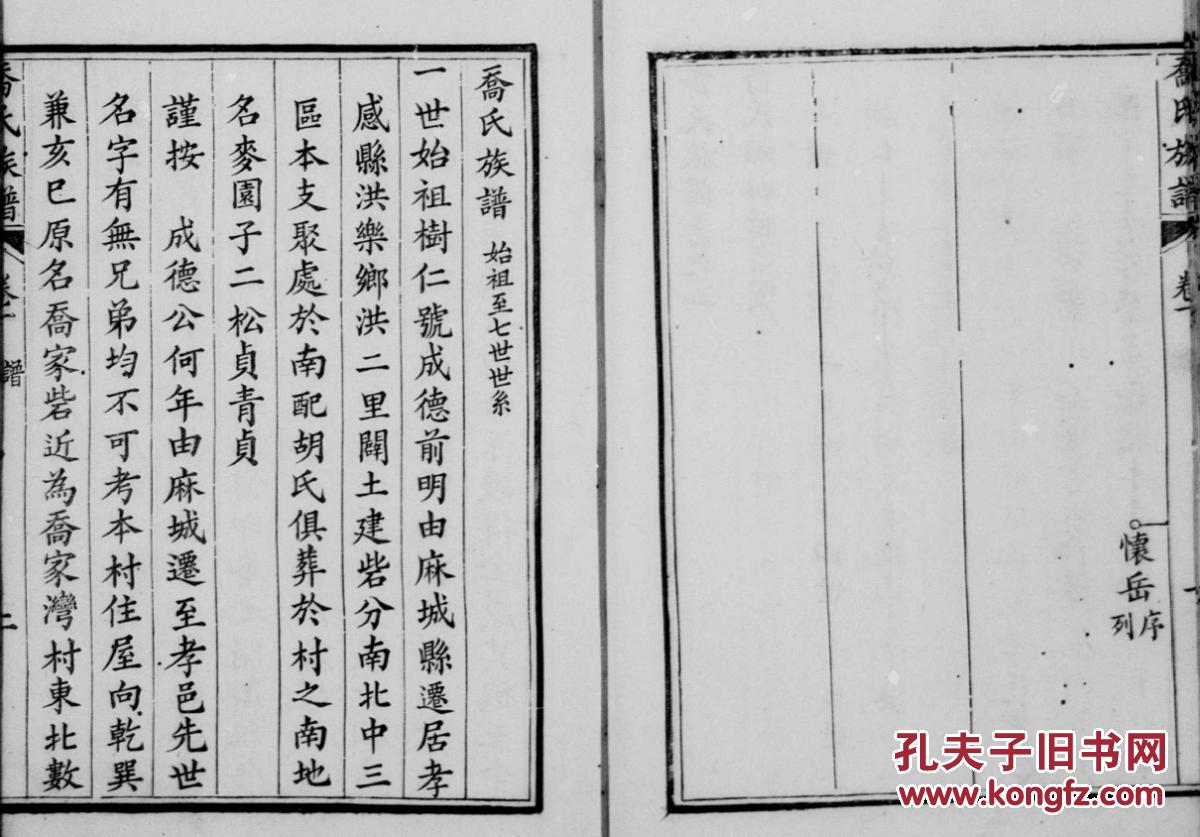 喬氏族譜
卷一
懷岳
序列
喬氏族譜 始祖至七世世系
一世始祖樹仁號成德前明由麻城縣遷居孝
感縣洪樂鄉洪二里闢土建砦分南北中三
區本支聚處於南配胡氏俱葬於村之南地
名麥園子二松貞青貞
謹按 成德公何年由麻城遷至孝邑先世
名字有無兄弟均不可考本村住屋向乾巽
兼亥巳原名喬家砦近為喬家灣村東北數
喬氏族譜
卷一
譜
孔夫子旧书网
www.kongfz.com